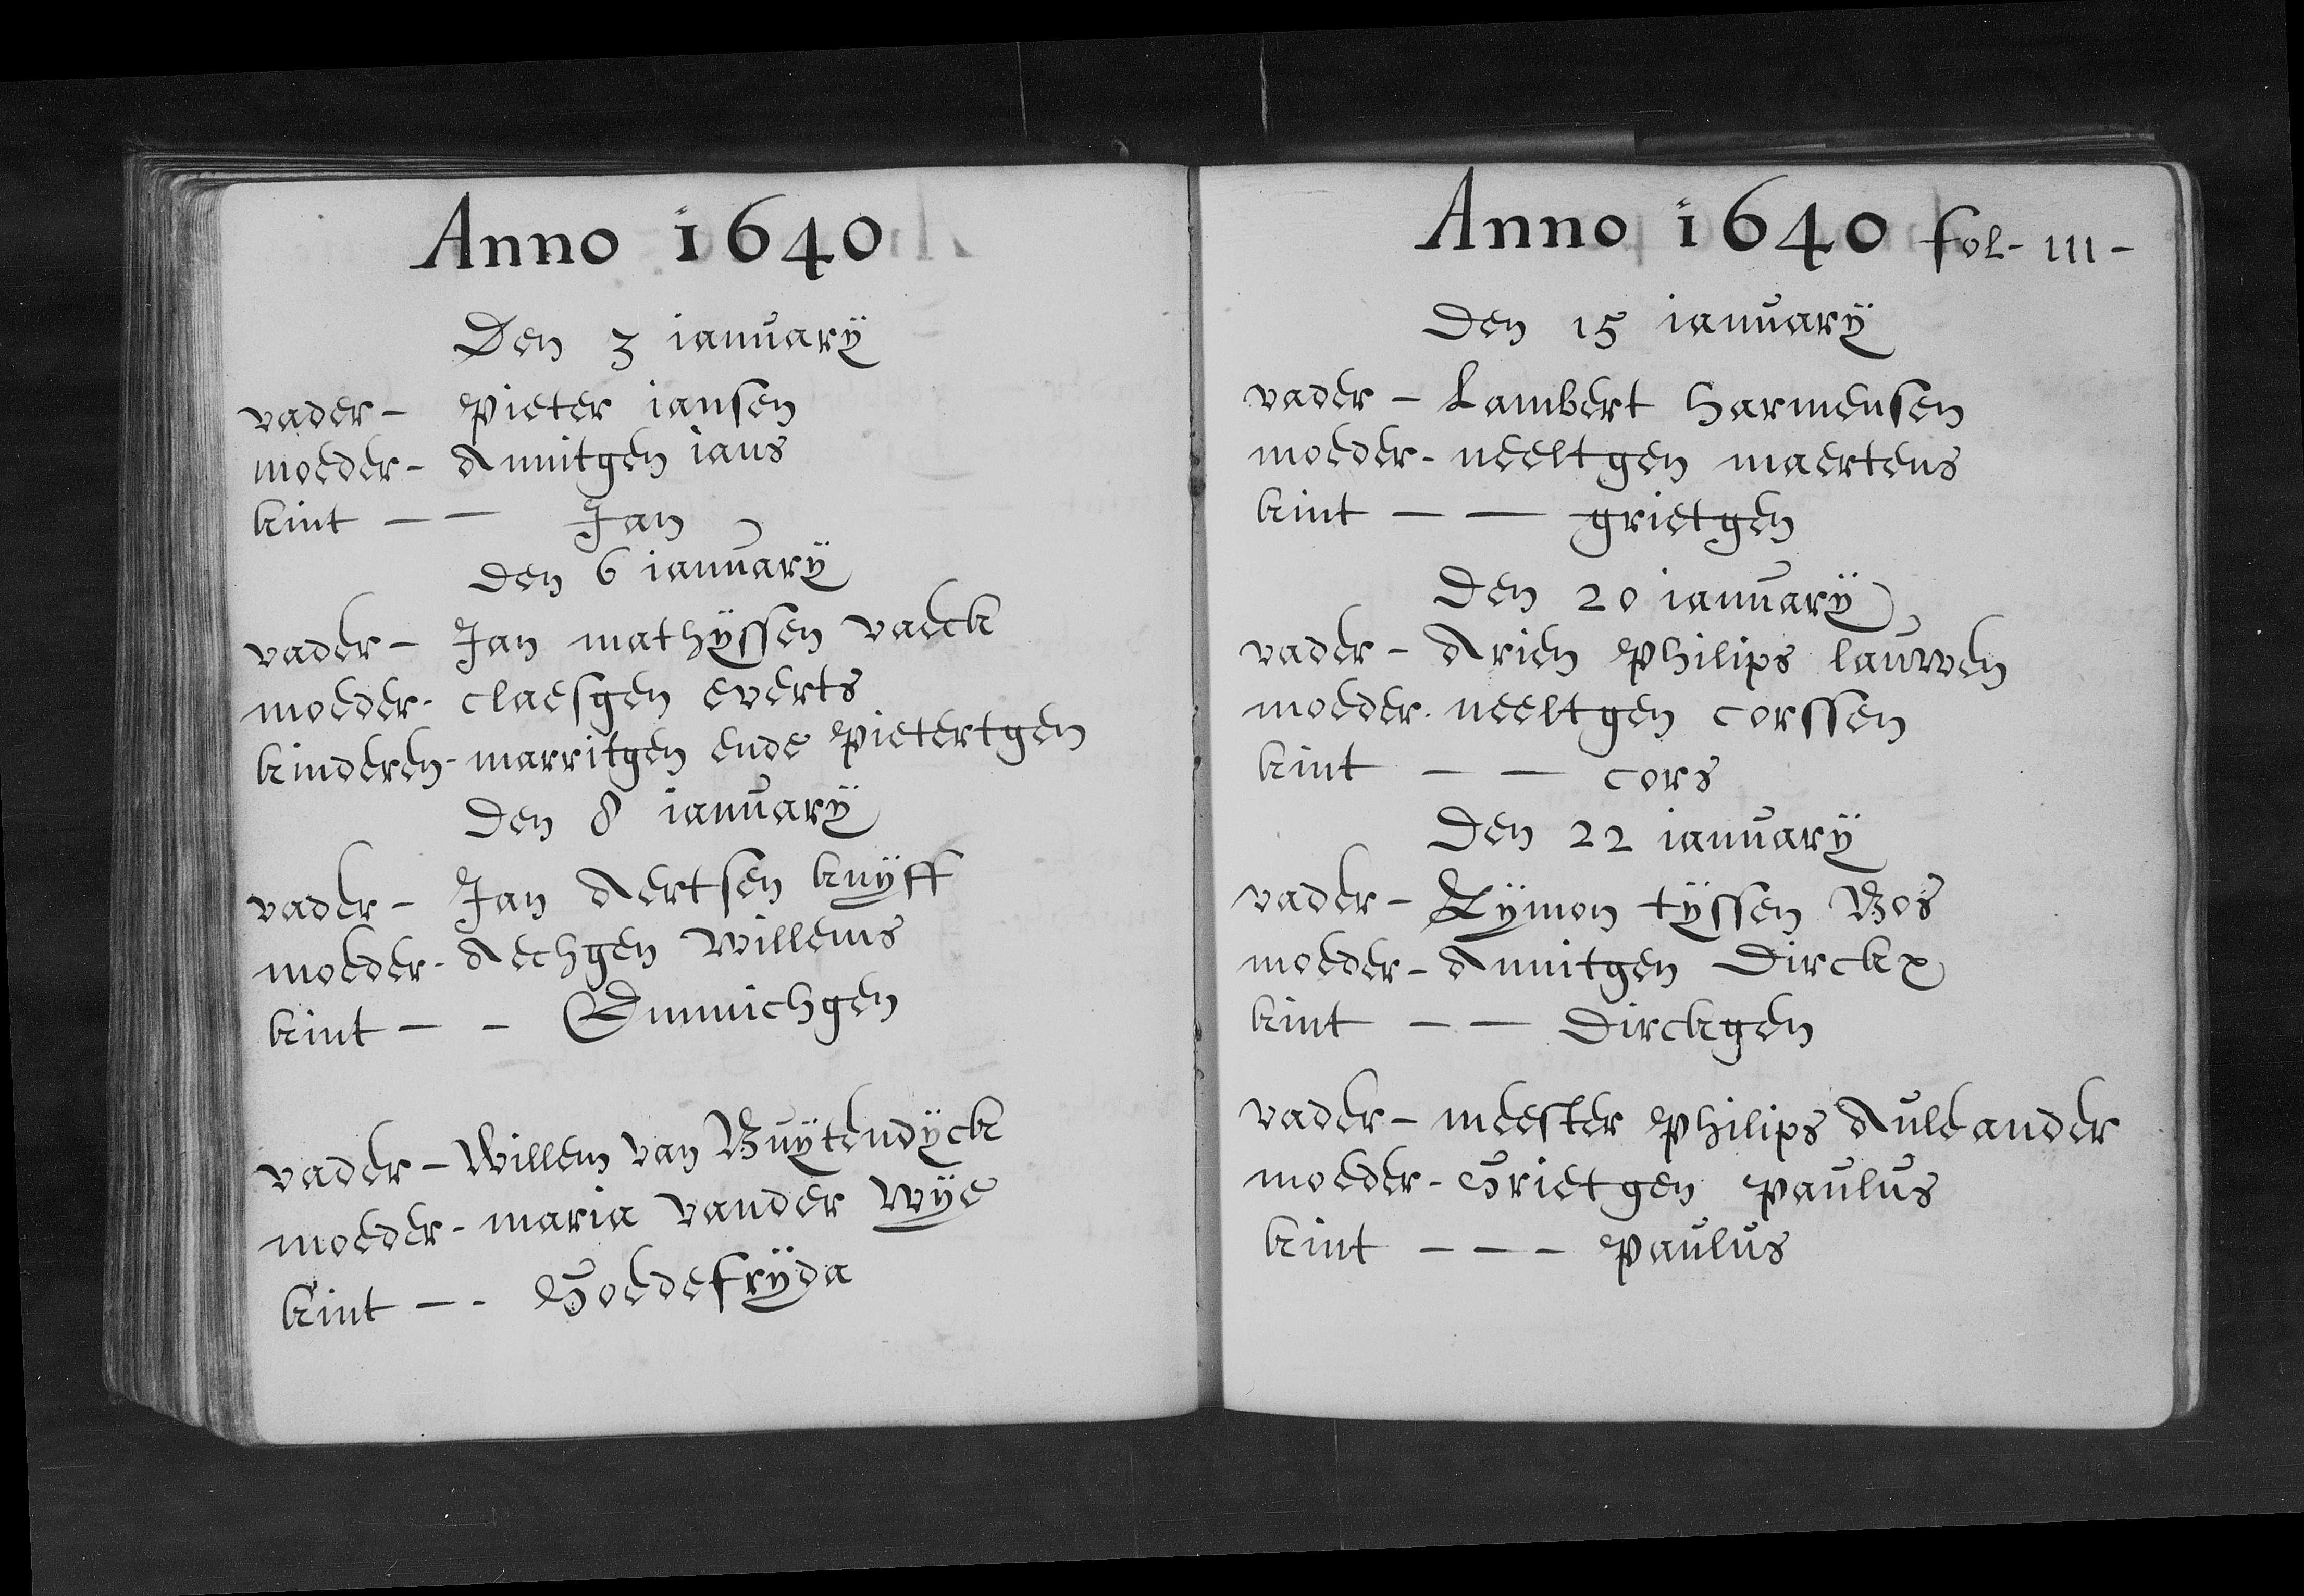 Anno 1640
Den 3 ianuarÿ
vader - Pieter iansen
moeder - Annitgen ians
kint - - Jan
Den 6 ianuarÿ
vader - Jan mathÿssen vaeck
moeder - claesgen everts
kinderen - marritgen ende Pietertgen
Den 8 ianuarÿ
vader - Jan Aertsen knÿff
moeder - Aechgen Willems
kint - - Emmichgen
vader - Willem van Buÿtendÿck
moeder - maria vander Wÿe
kint - - Goedefrÿda
Anno 1640 fol - 111 -
Den 15 ianuarÿ
vader - Lambert Harmensen
moeder - neeltgen maertens
kint - - grietgen
Den 20 ianuarÿ
vader - Arien Philips lauwen
moeder - neeltgen corssen
kint - - cors
Den 22 ianuarÿ
vader - Rÿmon tÿssen Bos
moeder - Annitgen Dirckx
kint - - Dirckgen
vader - meester Philips Auleander
moeder - Grietgen Paulus
kint - - - Paulus